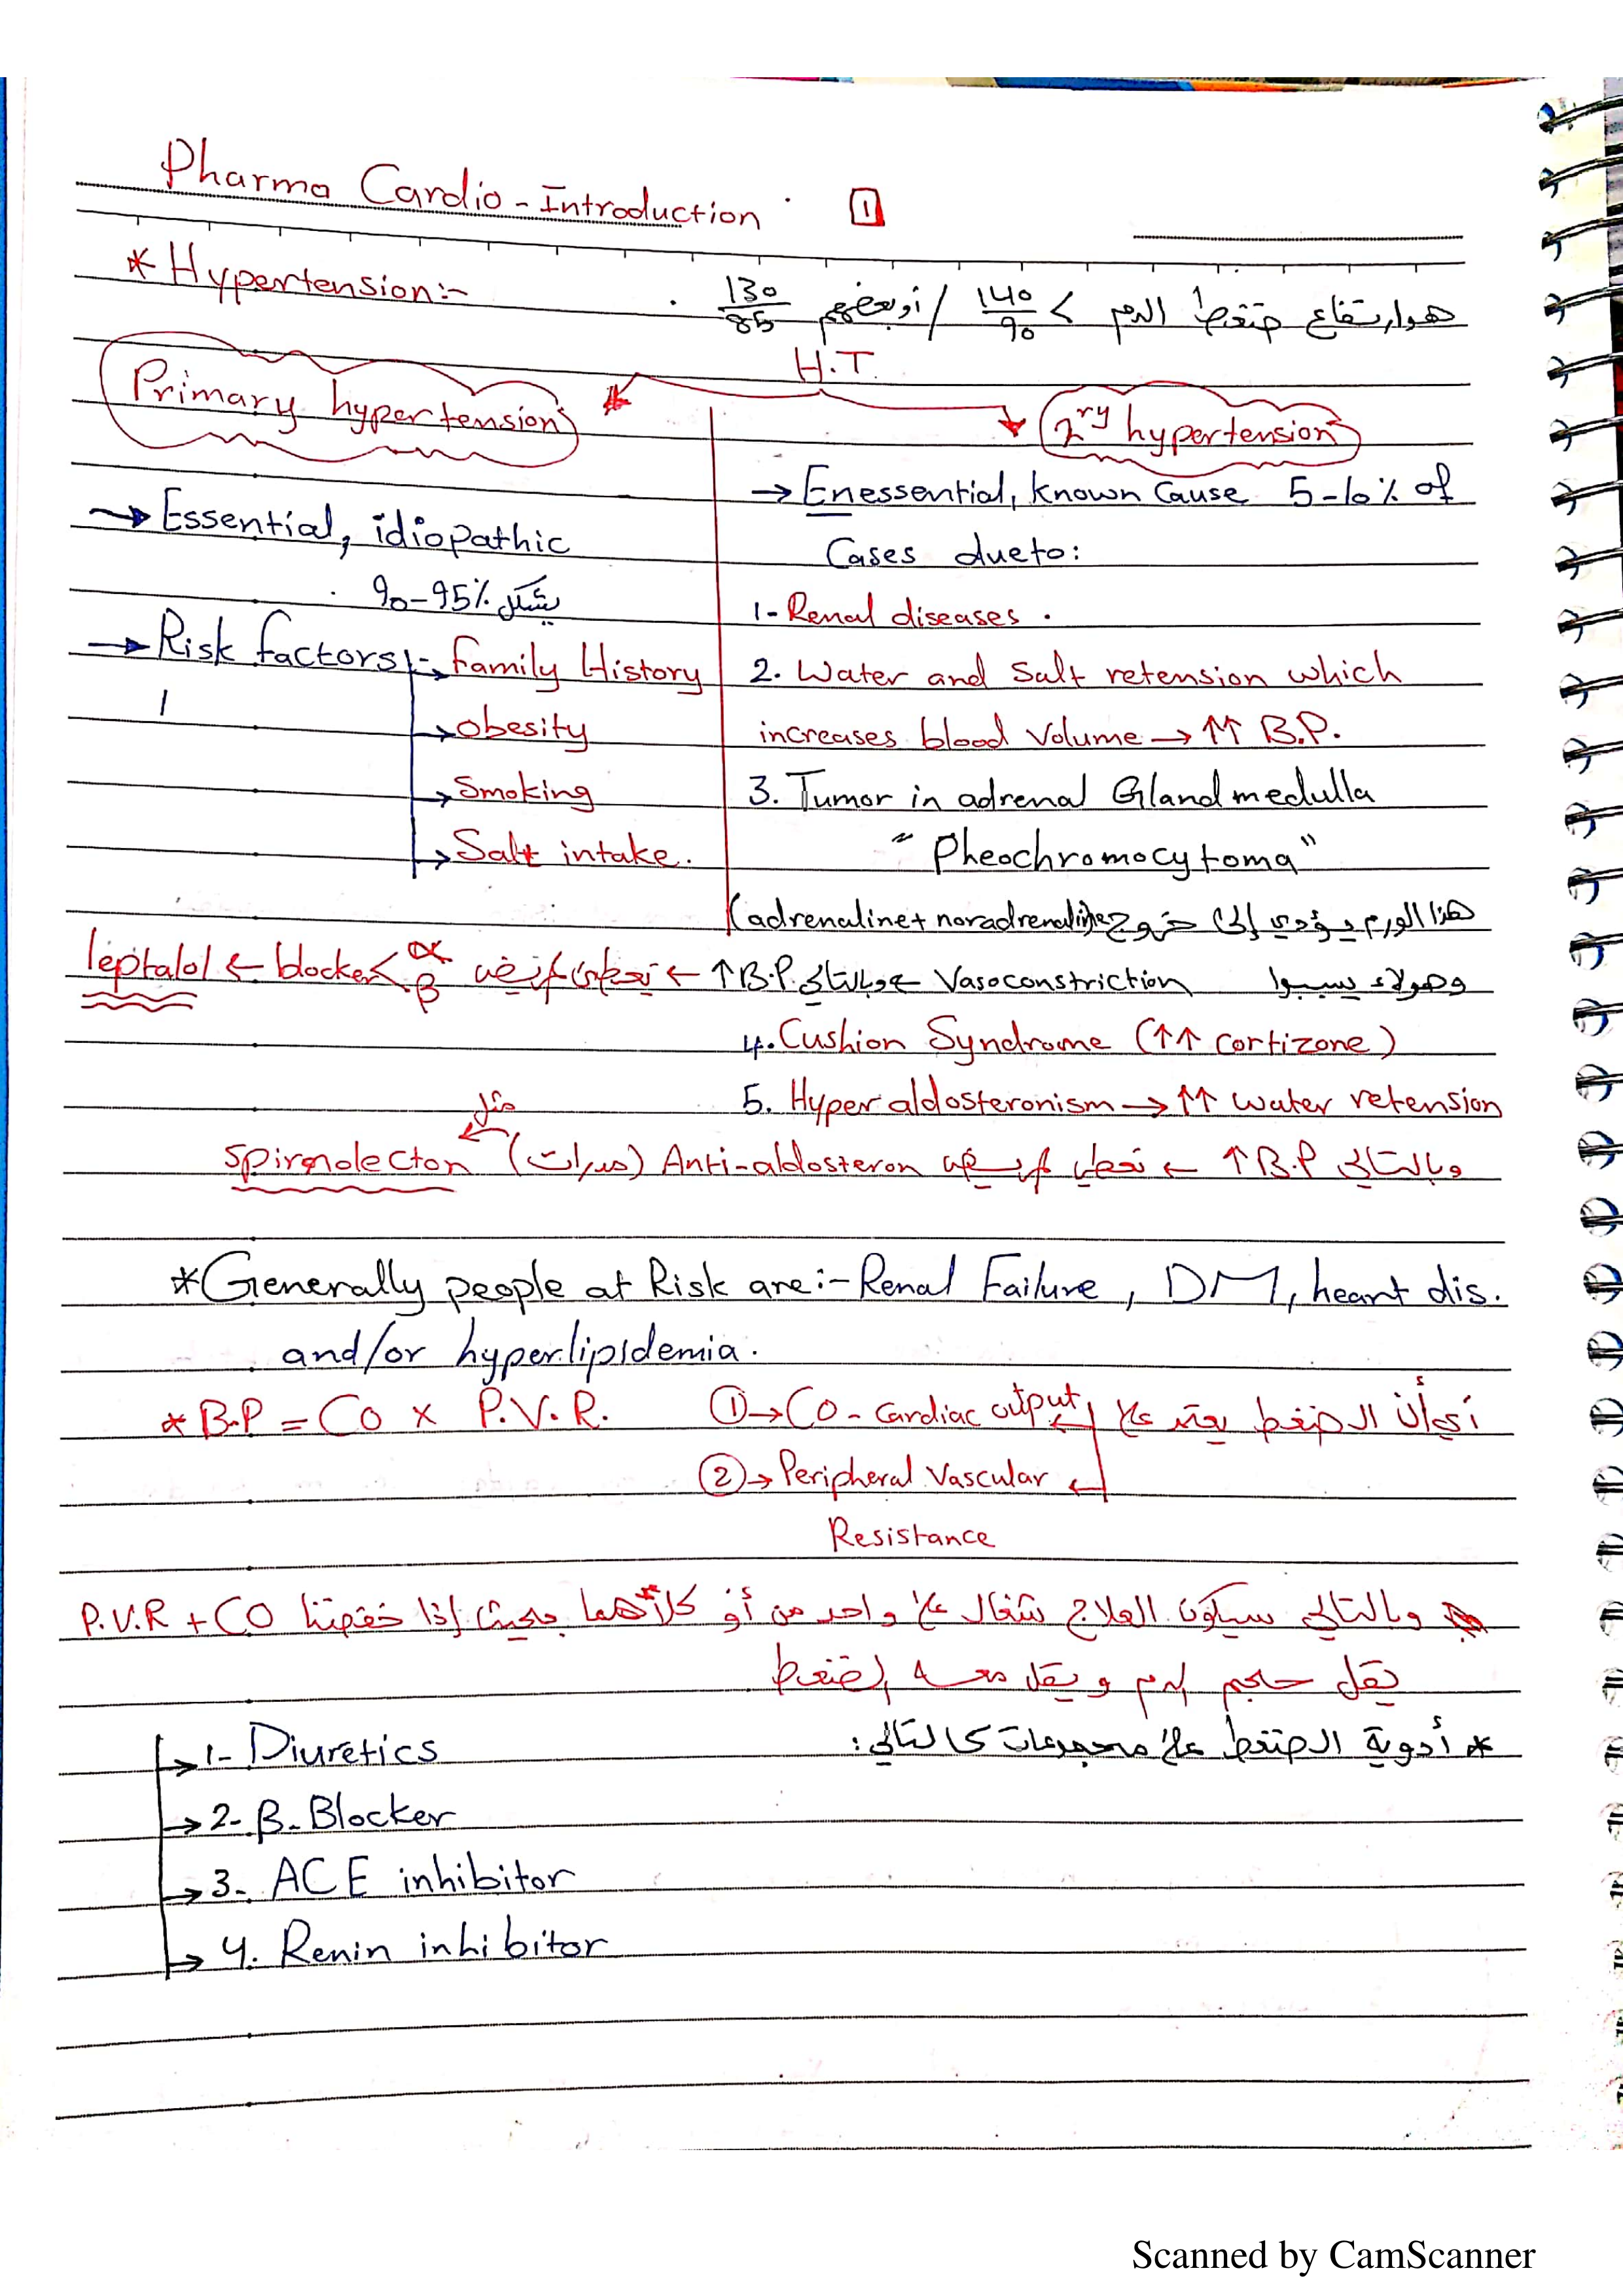 Pharma Cardio - Introduction 1
* Hypertension:-
هو ارتفاع ضغط الدم > 140/90 / أو بعضهم 130/85 .
H.T.
Primary hypertension
2ry hypertension
→ Essential, idiopathic
90-95% بشكل
→ Risk factors:- Family History
→ obesity
→ Smoking
→ Salt intake.
→ Enessential, known Cause 5-10% of
Cases due to:
1- Renal diseases .
2. Water and Salt retension which
increases blood volume → ↑↑ B.P.
3. Tumor in adrenal Gland medulla
" Pheochromocytoma "
هذا الورم يؤدي إلى خروج (adrenaline + noradrenaline)
وهولاء يسببوا Vasoconstriction ← وبالتالي B.P. ↑ ← نعطي المريض α β blocker ← leptalol
4. Cushion Syndrome (↑↑ cortizone)
5. Hyper aldosteronism → ↑↑ water retension
وبالتالي B.P ↑ ← نعطي المريض Anti-aldosteron (مدرات) مثل Spironolecton
* Generally people at Risk are:- Renal Failure, DM, heart dis.
and/or hyperlipidemia.
* B.P = CO x P.V.R.
أي أن الضغط يعتمد على
① → CO - Cardiac output
② → Peripheral Vascular
Resistance
وبالتالي سيكون العلاج شغال على واحد من أو كلاهما بحيث إذا خفضنا P.V.R + CO
يقل حجم الدم ويقل معه الضغط
* أدوية الضغط على مجموعات كالتالي:
→ 1- Diuretics
→ 2- β-Blocker
→ 3- ACE inhibitor
→ 4. Renin inhibitor
Scanned by CamScanner